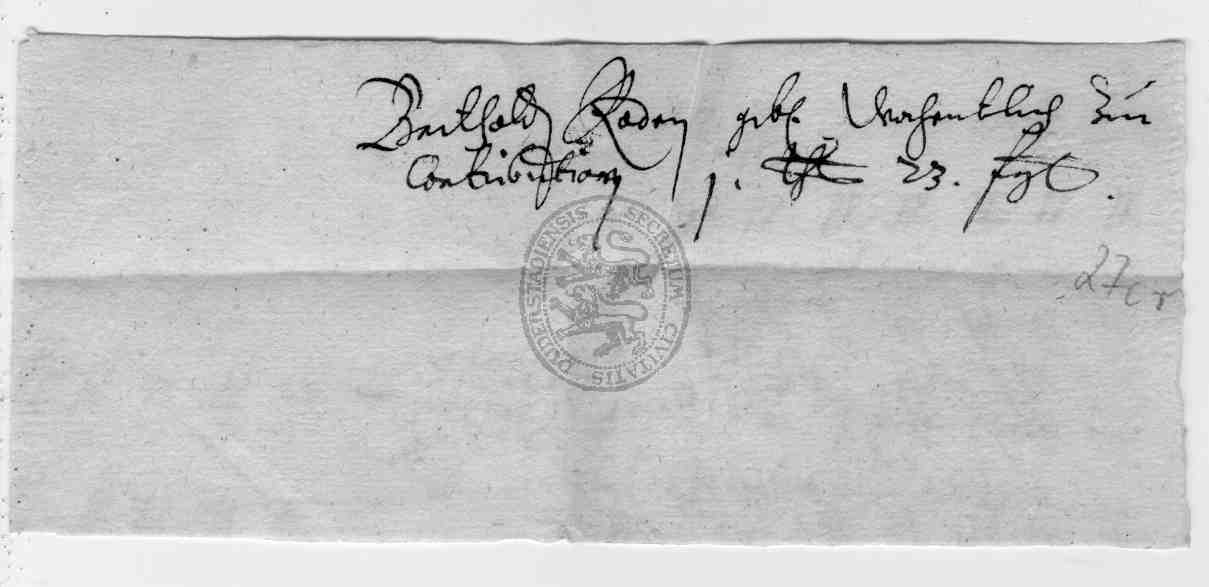 Berthold Roden gibt Wochentlich Zur
Contribution j. thl 23. fgl.
SECRETUM CIVITATIS DUDERSTADIENSIS
27 r